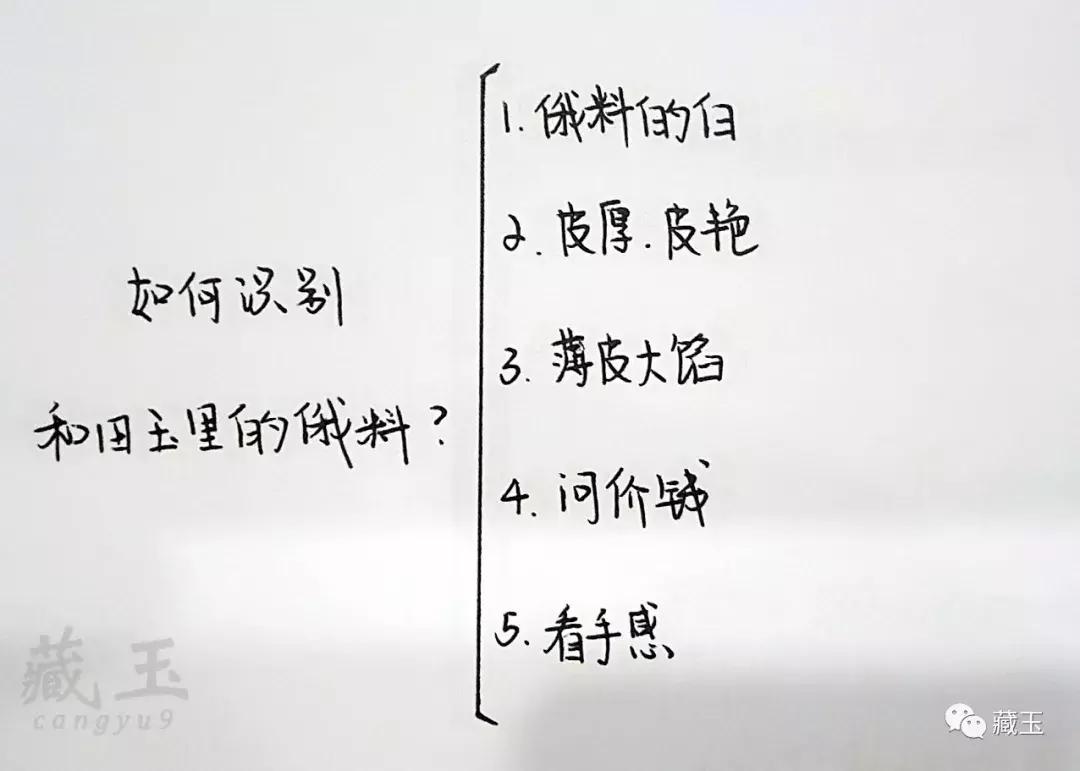 如何识别
和田玉里的俄料?
1. 俄料的白
2. 皮厚.皮艳
3. 薄皮大馅
4. 问价钱
5. 看手感
藏玉
cangyu9
藏玉